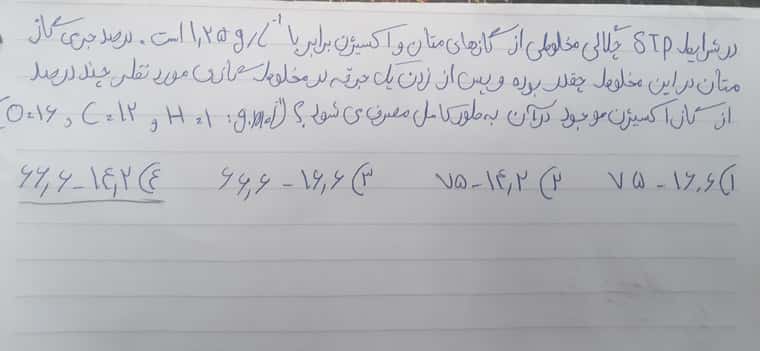 در شرایط STP چگالی مخلوطی از گازهای متان و اکسیژن برابر با ۱,۲۵ g/L⁻¹ است. درصد جرمی گاز
متان در این مخلوط چقدر بوده و پس از زدن یک جرقه در مخلوط گازی مورد نظر چند درصد
از گاز اکسیژن موجود در آن به طور کامل مصرف می شود؟ (O=۱۶, C=۱۲ و H=۱ : g.mol⁻¹)
۱) ۱۶,۶ - ۷۵ ۲) ۱۴,۲ - ۷۵ ۳) ۱۶,۶ - ۶۶,۶ ۴) ۱۴,۲ - ۶۶,۶